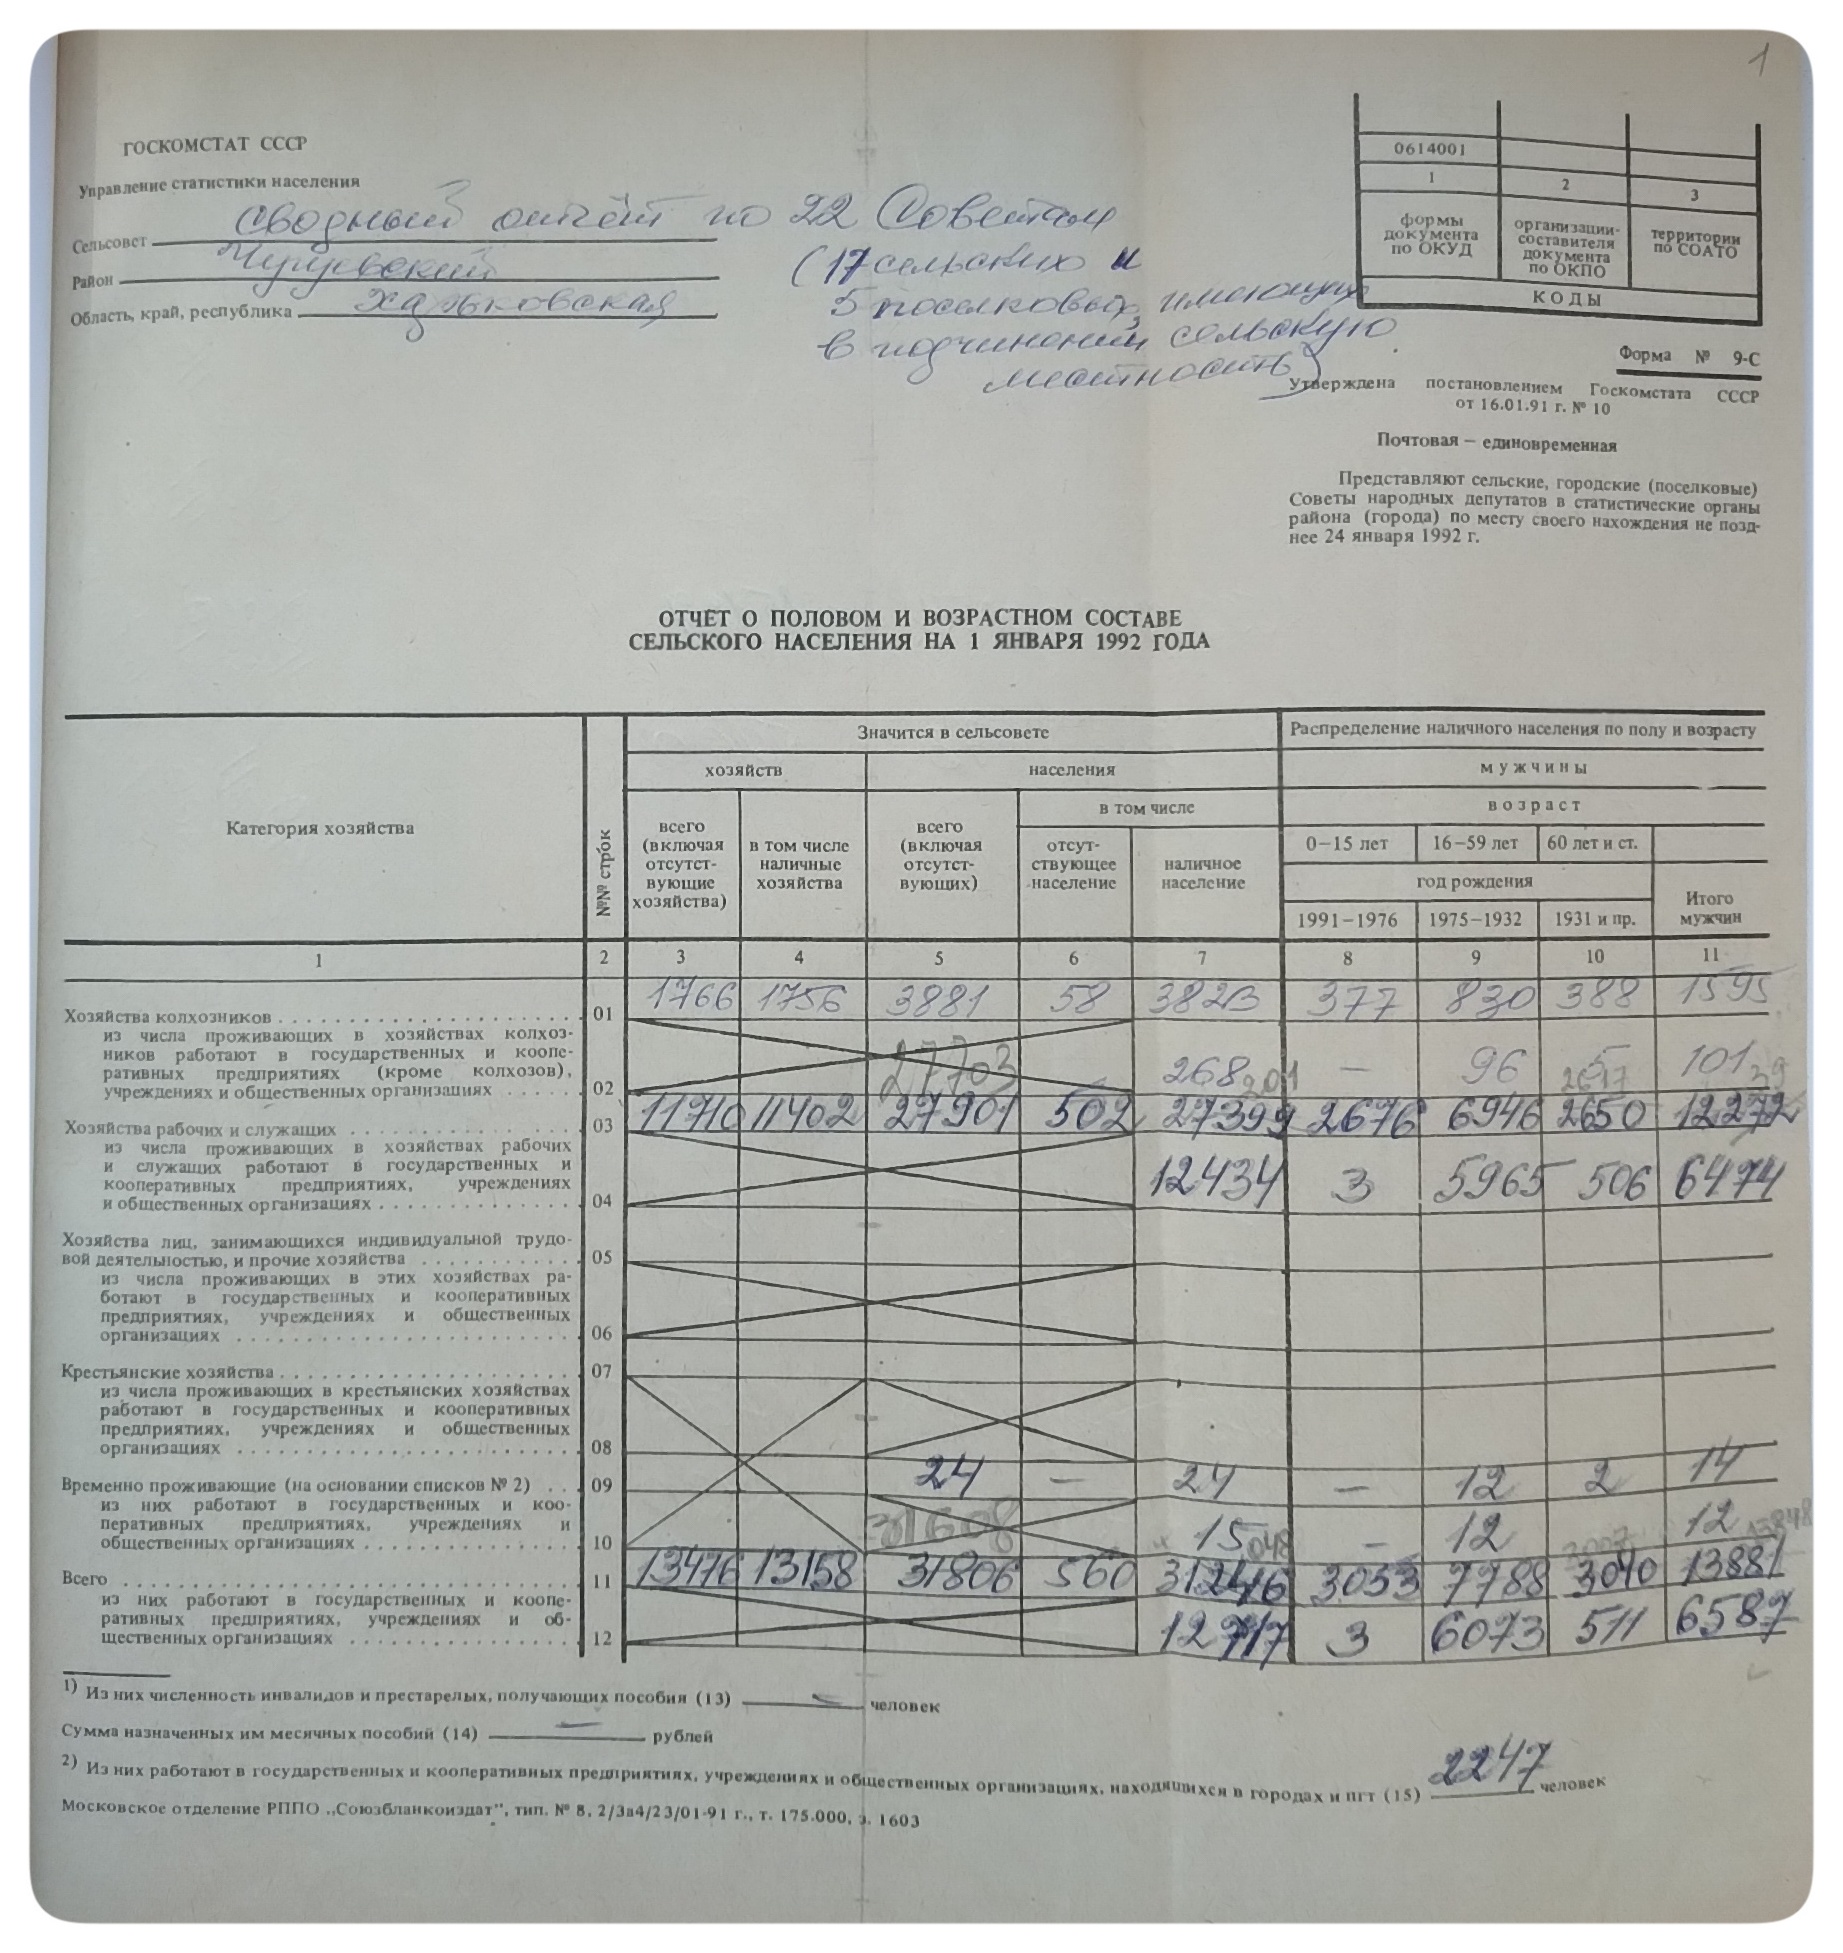 1
ГОСКОМСТАТ СССР
Управление статистики населения
Сельсовет Сводный отчёт по 22 Советам
Район Чугуевский
(17 сельских и
Область, край, республика Харьковская
5 поселковых, имеющих
в подчинении сельскую
местность)
0614001
1 2 3
формы документа по ОКУД
организации-составителя документа по ОКПО
территории по СОАТО
КОДЫ
Форма № 9-С
Утверждена постановлением Госкомстата СССР
от 16.01.91 г. № 10
Почтовая – единовременная
Представляют сельские, городские (поселковые)
Советы народных депутатов в статистические органы
района (города) по месту своего нахождения не позд-
нее 24 января 1992 г.
ОТЧЁТ О ПОЛОВОМ И ВОЗРАСТНОМ СОСТАВЕ
СЕЛЬСКОГО НАСЕЛЕНИЯ НА 1 ЯНВАРЯ 1992 ГОДА
Категория хозяйства
№№ строк
Значится в сельсовете
Распределение наличного населения по полу и возрасту
хозяйств
населения
мужчины
в том числе
возраст
всего (включая отсутст-вующие хозяйства)
в том числе наличные хозяйства
всего (включая отсутст-вующих)
отсут-ствующее население
наличное население
0–15 лет 16–59 лет 60 лет и ст.
год рождения
1991–1976 1975–1932 1931 и пр.
Итого мужчин
1 2 3 4 5 6 7 8 9 10 11
Хозяйства колхозников 01 1766 1756 3881 58 3823 377 830 388 1595
из числа проживающих в хозяйствах колхоз-
ников работают в государственных и коопе-
ративных предприятиях (кроме колхозов),
учреждениях и общественных организациях 02 268 – 96 5 101
27703 201 2617 39
Хозяйства рабочих и служащих 03 11710 11402 27901 502 27399 2676 6946 2650 12272
из числа проживающих в хозяйствах рабочих
и служащих работают в государственных и
кооперативных предприятиях, учреждениях
и общественных организациях 04 12434 3 5965 506 6474
Хозяйства лиц, занимающихся индивидуальной трудо-
вой деятельностью, и прочие хозяйства 05
из числа проживающих в этих хозяйствах ра-
ботают в государственных и кооперативных
предприятиях, учреждениях и общественных
организациях 06
Крестьянские хозяйства 07
из числа проживающих в крестьянских хозяйствах
работают в государственных и кооперативных
предприятиях, учреждениях и общественных
организациях 08
Временно проживающие (на основании списков № 2) 09 24 – 24 – 12 2 14
из них работают в государственных и коо-
перативных предприятиях, учреждениях и
общественных организациях 10 15 – 12 12
31608 048 3007 13848
Всего 11 13476 13158 31806 560 31246 3053 7788 3040 13881
из них работают в государственных и коопе-
ративных предприятиях, учреждениях и об-
щественных организациях 12 12717 3 6073 511 6587
1) Из них численность инвалидов и престарелых, получающих пособия (13) – человек
Сумма назначенных им месячных пособий (14) – рублей
2) Из них работают в государственных и кооперативных предприятиях, учреждениях и общественных организациях, находящихся в городах и пгт (15) 2247 человек
Московское отделение РППО „Союзбланкоиздат", тип. № 8, 2/3а4/23/01-91 г., т. 175.000, з. 1603